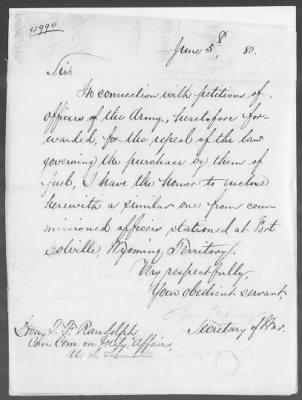 4994
June 5, 80.
Sir:
In connection with petitions of
officers of the Army, heretofore for-
warded, for the repeal of the law
governing the purchase by them of
fuel, I have the honor to inclose
herewith a similar one from com-
missioned officers stationed at Fort
Wyoming Territory.
Very respectfully,
Your obedient servant,
Secretary of War.
Hon. Randolph,
Com. on Affairs,
U. S. Senate